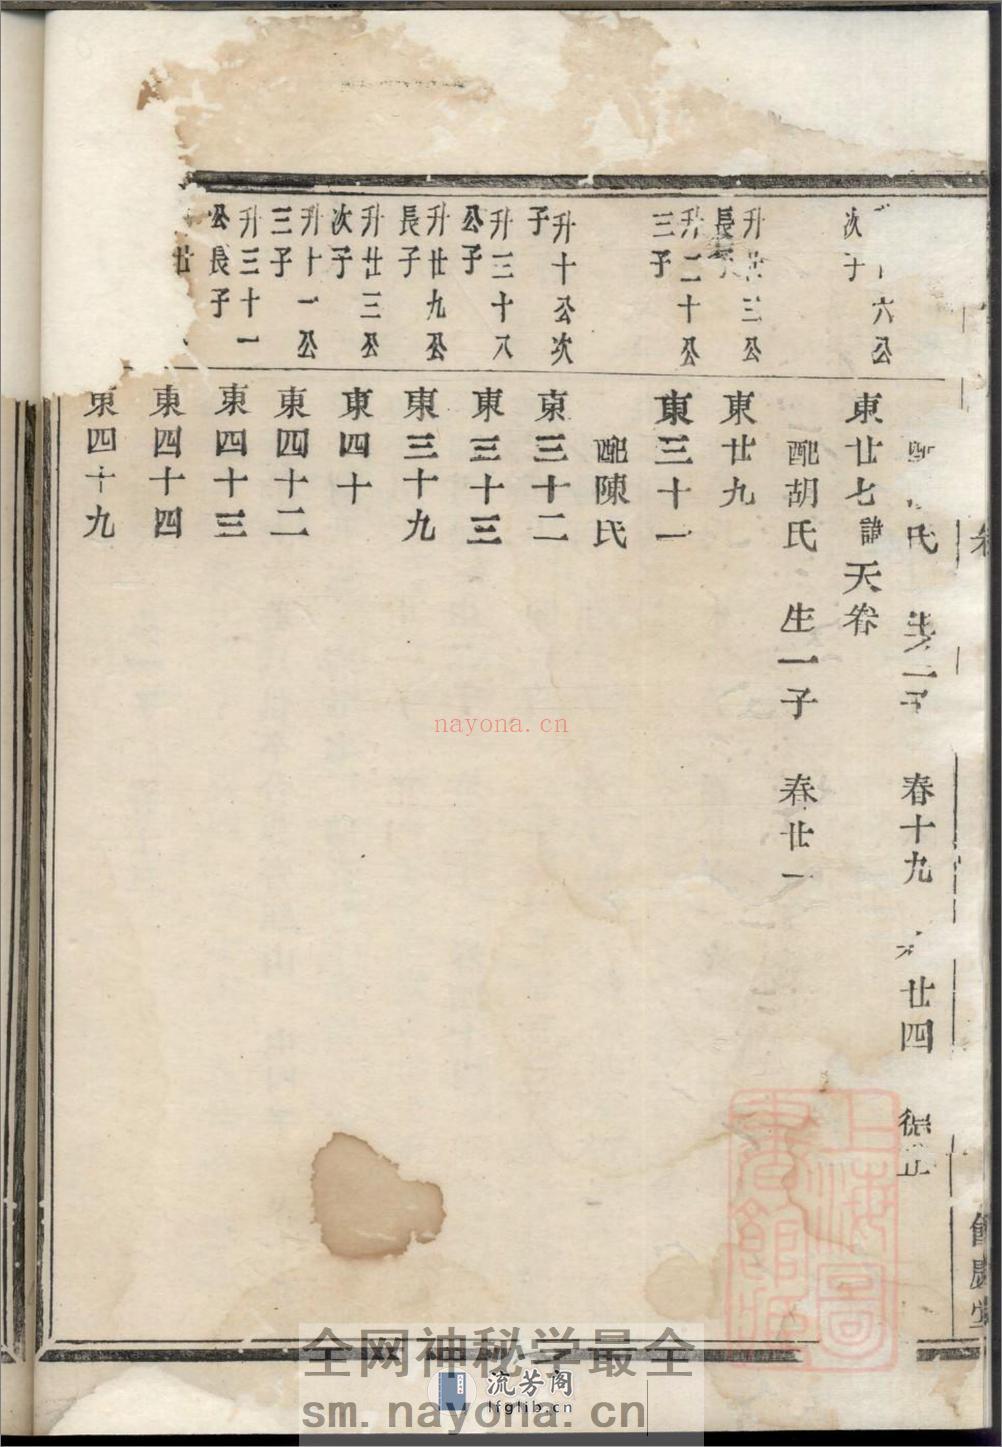 氏 子 春十九 廿四
六公
次子
東廿七諱天眷
配胡氏 生一子 春廿一
升廿三公
長
東廿九
升二十公
三子
東三十一
配陳氏
升十公次
子
東三十二
升三十八
公子
東三十三
升廿九公
長子
東三十九
升廿三公
次子
東四十
升十一公
三子
東四十二
升三十一
公長子
東四十三
廿
東四十四
東四十九
上海圖書館藏
nayona.cn
全网神秘学最全
流芳阁
lfglib.cn
sm.nayona.cn